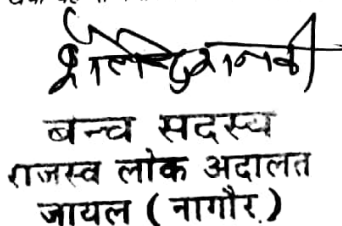 बन्च सदस्य
राजस्व लोक अदालत
जायल ( नागौर )